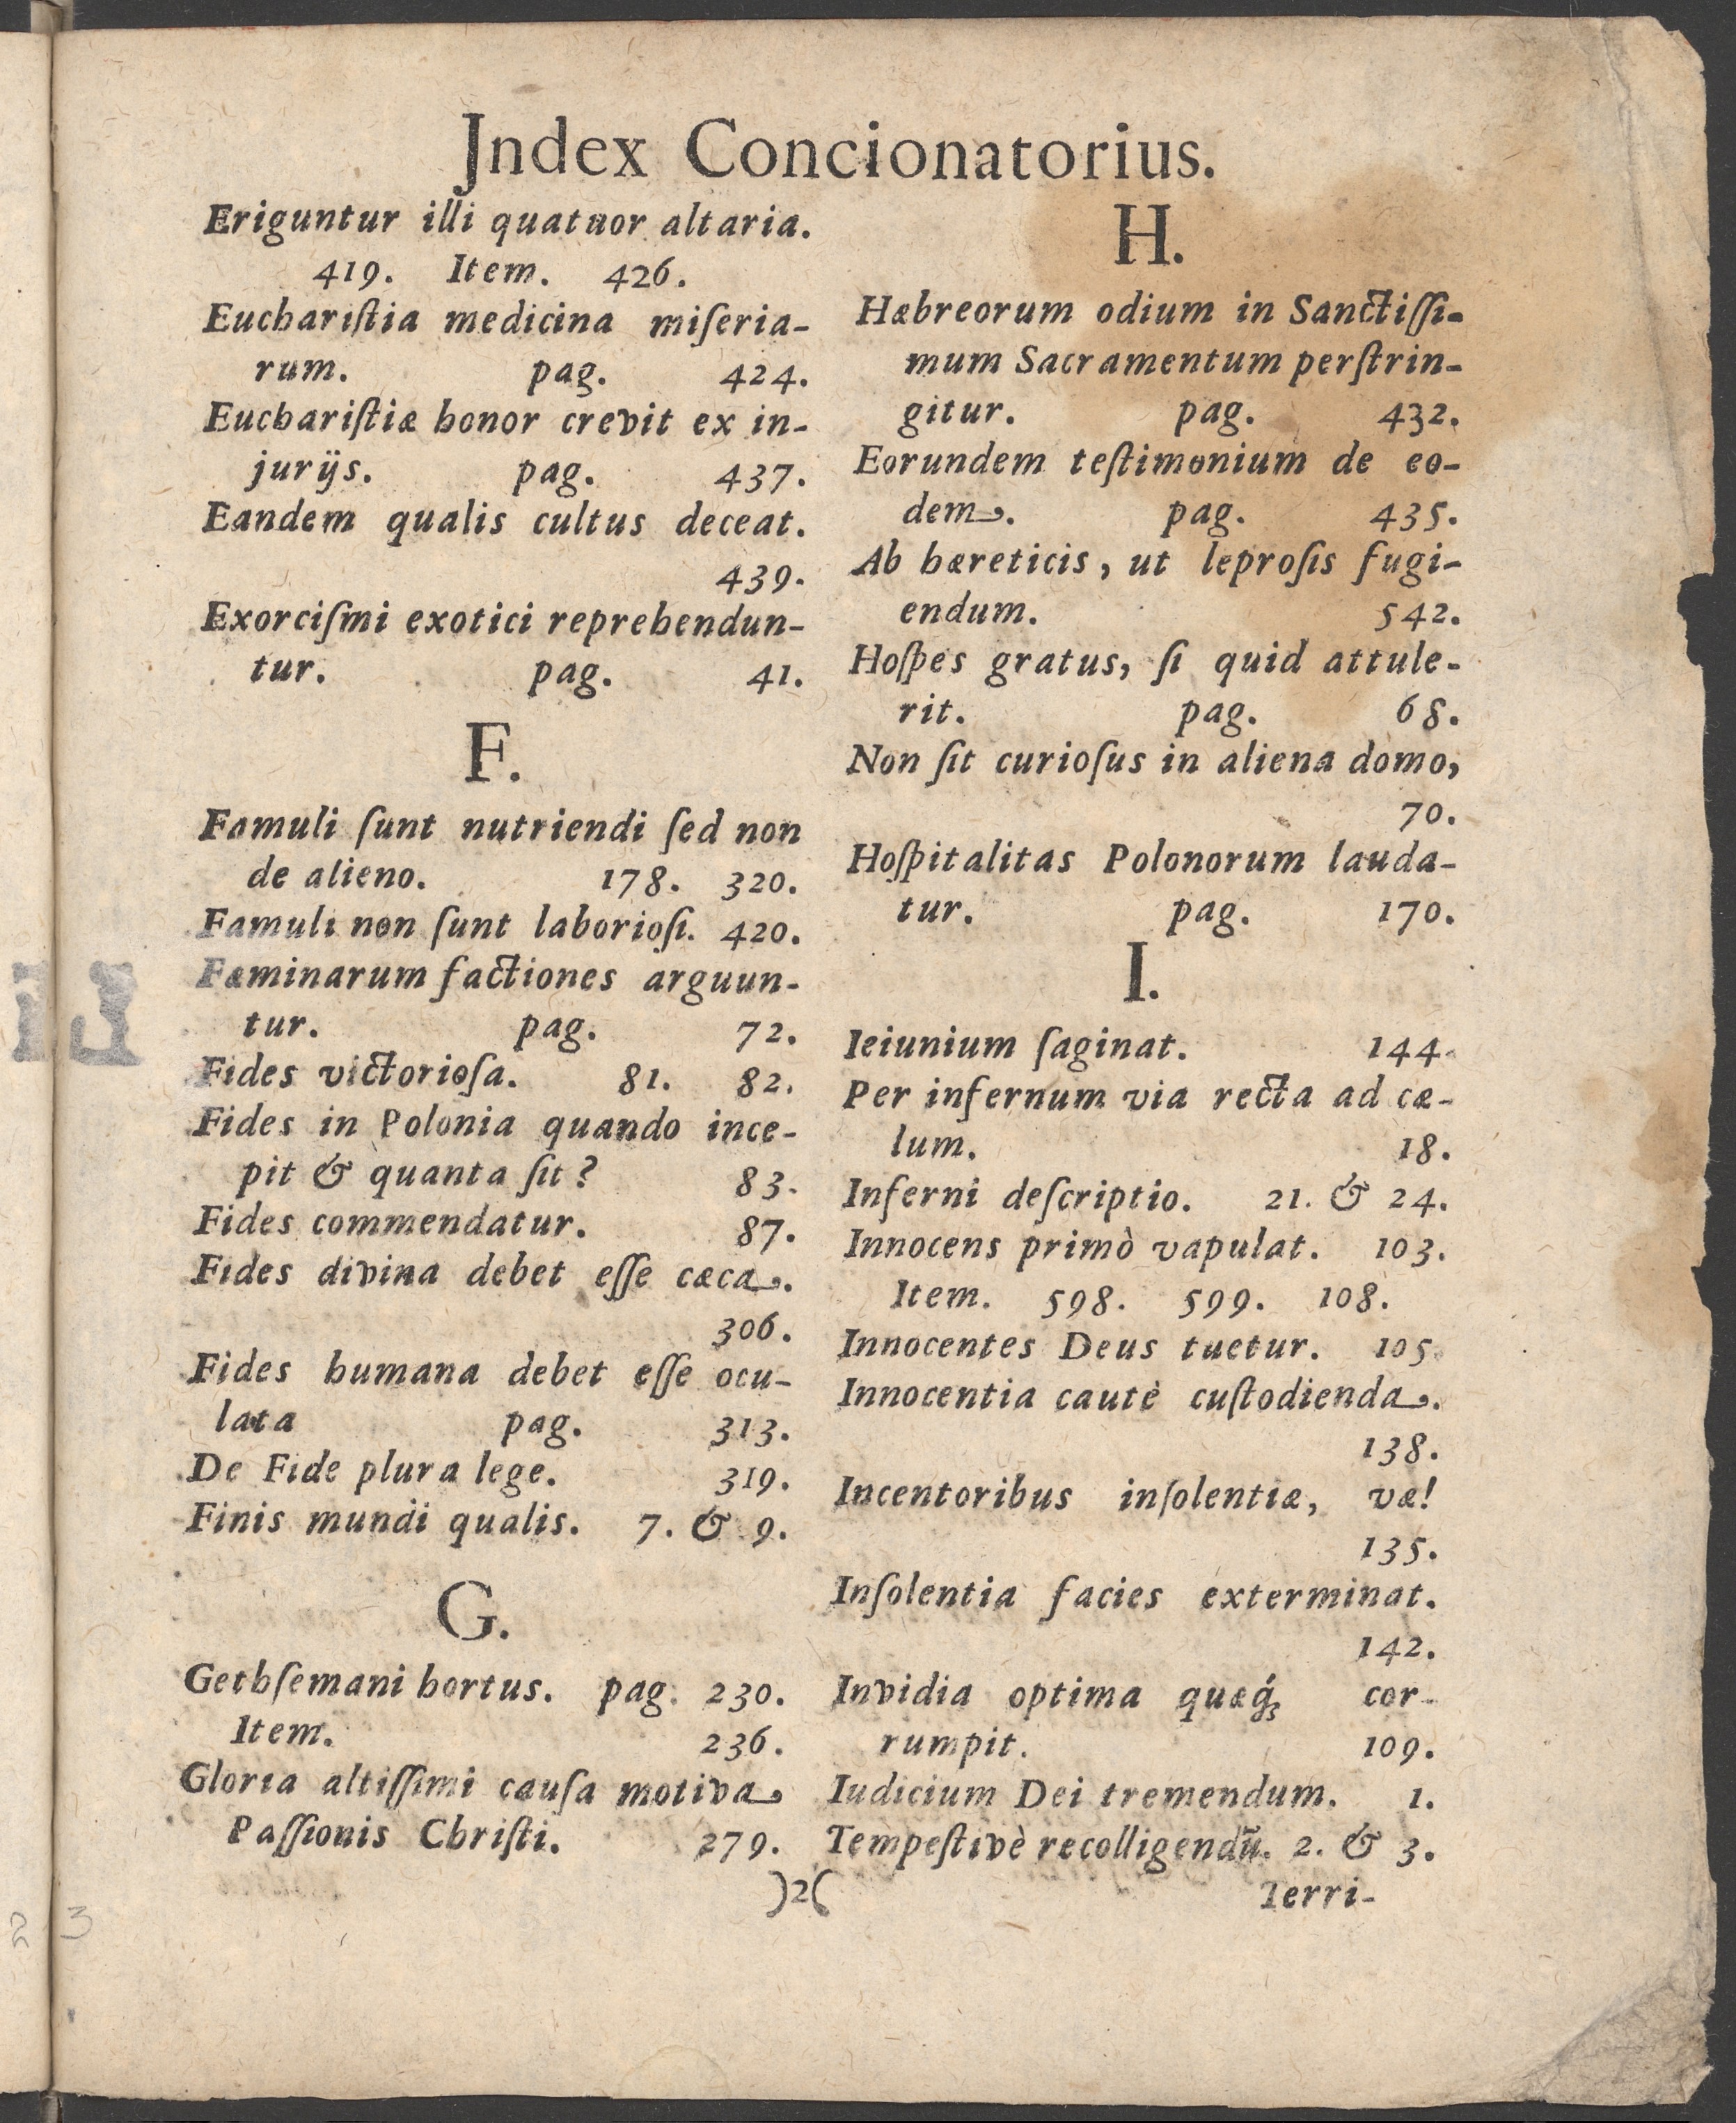 Jndex Concionatorius.
Eriguntur illi quatuor altaria.
419. Item. 426.
Euchariſtia medicina miſeria-
rum. pag. 424.
Euchariſtiæ honor crevit ex in-
jurijs. pag. 437.
Eandem qualis cultus deceat.
439.
Exorciſmi exotici reprehendun-
tur. pag. 41.
F.
Famuli ſunt nutriendi ſed non
de alieno. 178. 320.
Famuli non ſunt laborioſi. 420.
Fæminarum factiones arguun-
tur. pag. 72.
Fides victorioſa. 81. 82.
Fides in Polonia quando ince-
pit & quanta ſit? 83.
Fides commendatur. 87.
Fides divina debet eſſe cæca.
306.
Fides humana debet eſſe ocu-
lata pag. 313.
De Fide plura lege. 319.
Finis mundi qualis. 7. & 9.
G.
Gethſemani hortus. pag. 230.
Item. 236.
Gloria altiſſimi cauſa motiva
Paſſionis Chriſti. 279.
)2(
H.
Hæbreorum odium in Sanctiſſi-
mum Sacramentum perſtrin-
gitur. pag. 432.
Eorundem teſtimonium de eo-
dem. pag. 435.
Ab hæreticis, ut leproſis fugi-
endum. 542.
Hoſpes gratus, ſi quid attule-
rit. pag. 68.
Non ſit curioſus in aliena domo,
70.
Hoſpitalitas Polonorum lauda-
tur. pag. 170.
I.
Ieiunium ſaginat. 144.
Per infernum via recta ad cæ-
lum. 18.
Inferni deſcriptio. 21. & 24.
Innocens primò vapulat. 103.
Item. 598. 599. 108.
Innocentes Deus tuetur. 105.
Innocentia cautè cuſtodienda.
138.
Incentoribus inſolentiæ, væ!
135.
Inſolentia facies exterminat.
142.
Invidia optima quæq́; cor-
rumpit. 109.
Iudicium Dei tremendum. 1.
Tempeſtivè recolligendũ. 2. & 3.
Terri-